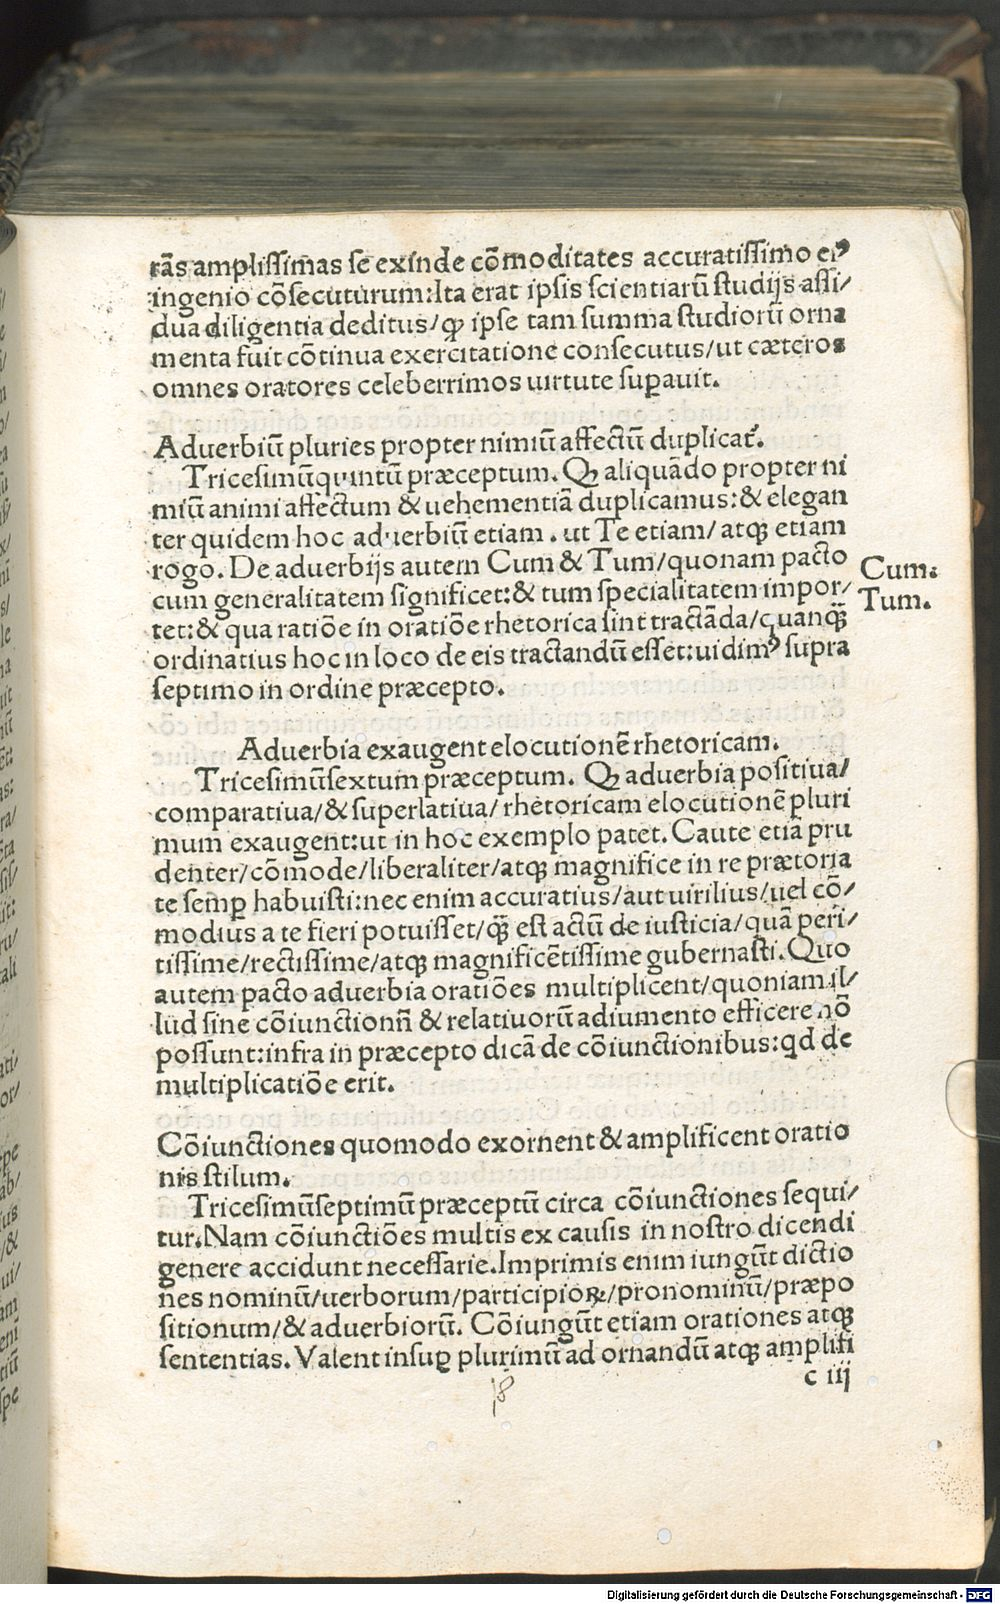 rãs amplissimas se exinde cõmoditates accuratissimo eiꝰ
ingenio cõsecuturum:Ita erat ipsis scientiarũ studijs assi/
dua diligentia deditus/ꝙ ipse tam summa studiorũ orna
menta fuit cõtinua exercitatione consecutus/ut cæteros
omnes oratores celeberrimos uirtute suꝑauit.
Aduerbiũ pluries propter nimiũ affectũ duplicat᷑.
Tricesimũquintũ præceptum. Ꝙ aliquãdo propter ni
miũ animi affectum & uehementiã duplicamus:& elegan
ter quidem hoc aduerbiũ etiam . ut Te etiam/ atqꝫ etiam
rogo. De aduerbijs autem Cum & Tum/quonam pacto
cum generalitatem significet:& tum specialitatem impor/
tet:& qua ratiõe in oratiõe rhetorica sint tractãda/quanqꝫ̃
ordinatius hoc in loco de eis tractandũ esset:uidimꝰ supra
septimo in ordine præcepto.
Cum.
Tum.
Aduerbia exaugent elocutionẽ rhetoricam.
Tricesimũsextum præceptum. Ꝙ aduerbia positiua/
comparatiua/& superlatiua/ rhetoricam elocutionẽ pluri
mum exaugent:ut in hoc exemplo patet. Caute etiã pru
denter/cõmode/liberaliter/atqꝫ magnifice in re prætoria
te semꝑ habuisti:nec enim accuratius/aut uirilius/uel cõ/
modius a te fieri potuisset/qꝫ̃ est actũ de iusticia/quã peri/
tissime/rectissime/atqꝫ magnificẽtissime gubernasti.Quo
autem pacto aduerbia oratiões multiplicent/quoniam il/
lud sine cõiunctionũ & relatiuorũ adiumento efficere nõ
possunt:infra in præcepto dicã de cõiunctionibus:qd de
multiplicatiõe erit.
Cõiunctiones quomodo exornent & amplificent oratio
nis stilum.
Tricesimũseptimũ præceptũ circa cõiunctiones sequi/
tur.Nam cõiunctiões multis ex causis in nostro dicendi
genere accidunt necessarie.Imprimis enim iungũt dictio
nes nominũ/uerborum/participioꝝ/pronominũ/præpo
sitionum/& aduerbiorũ. Cõiungũt etiam orationes atqꝫ
sententias. Valent insuꝑ plurimũ ad ornandũ atqꝫ amplifi
c iij
18
Digitalisierung gefördert durch die Deutsche Forschungsgemeinschaft - DFG